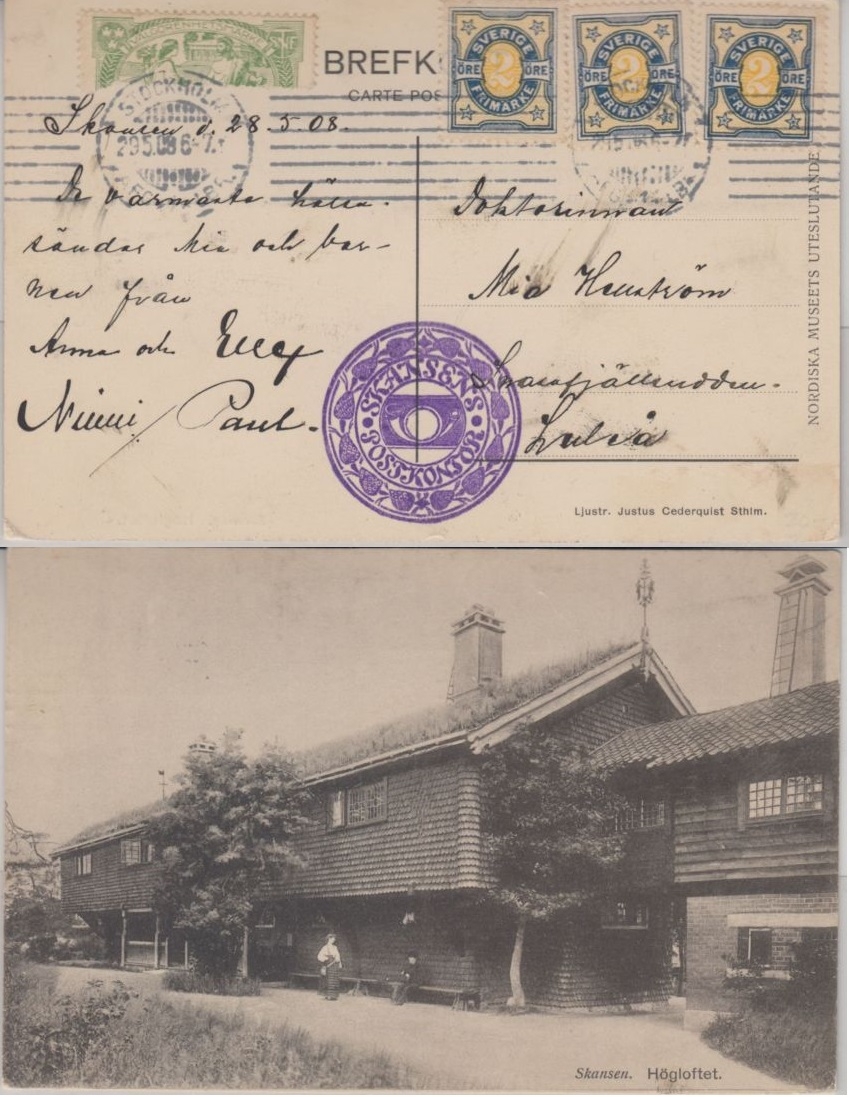 BREFK
CARTE POS
SVERIGE
ÖRE 2 ÖRE
FRIMÄRKE
SVERIGE
ÖRE 2 ÖRE
FRIMÄRKE
SVERIGE
ÖRE 2 ÖRE
FRIMÄRKE
STOCKHOLM
29.5.08 6-7
Skansen d. 28.5.08.
De varmaste hälsn.
sändas Mia och bar-
nen från
Anna och Elly
Ninni / Paul.
Doktorinnan
Mia Hellström
Luleå
SKANSENS
POSTKONTOR
NORDISKA MUSEETS UTESLUTANDE
Ljustr. Justus Cederquist Sthlm.
Skansen. Högloftet.